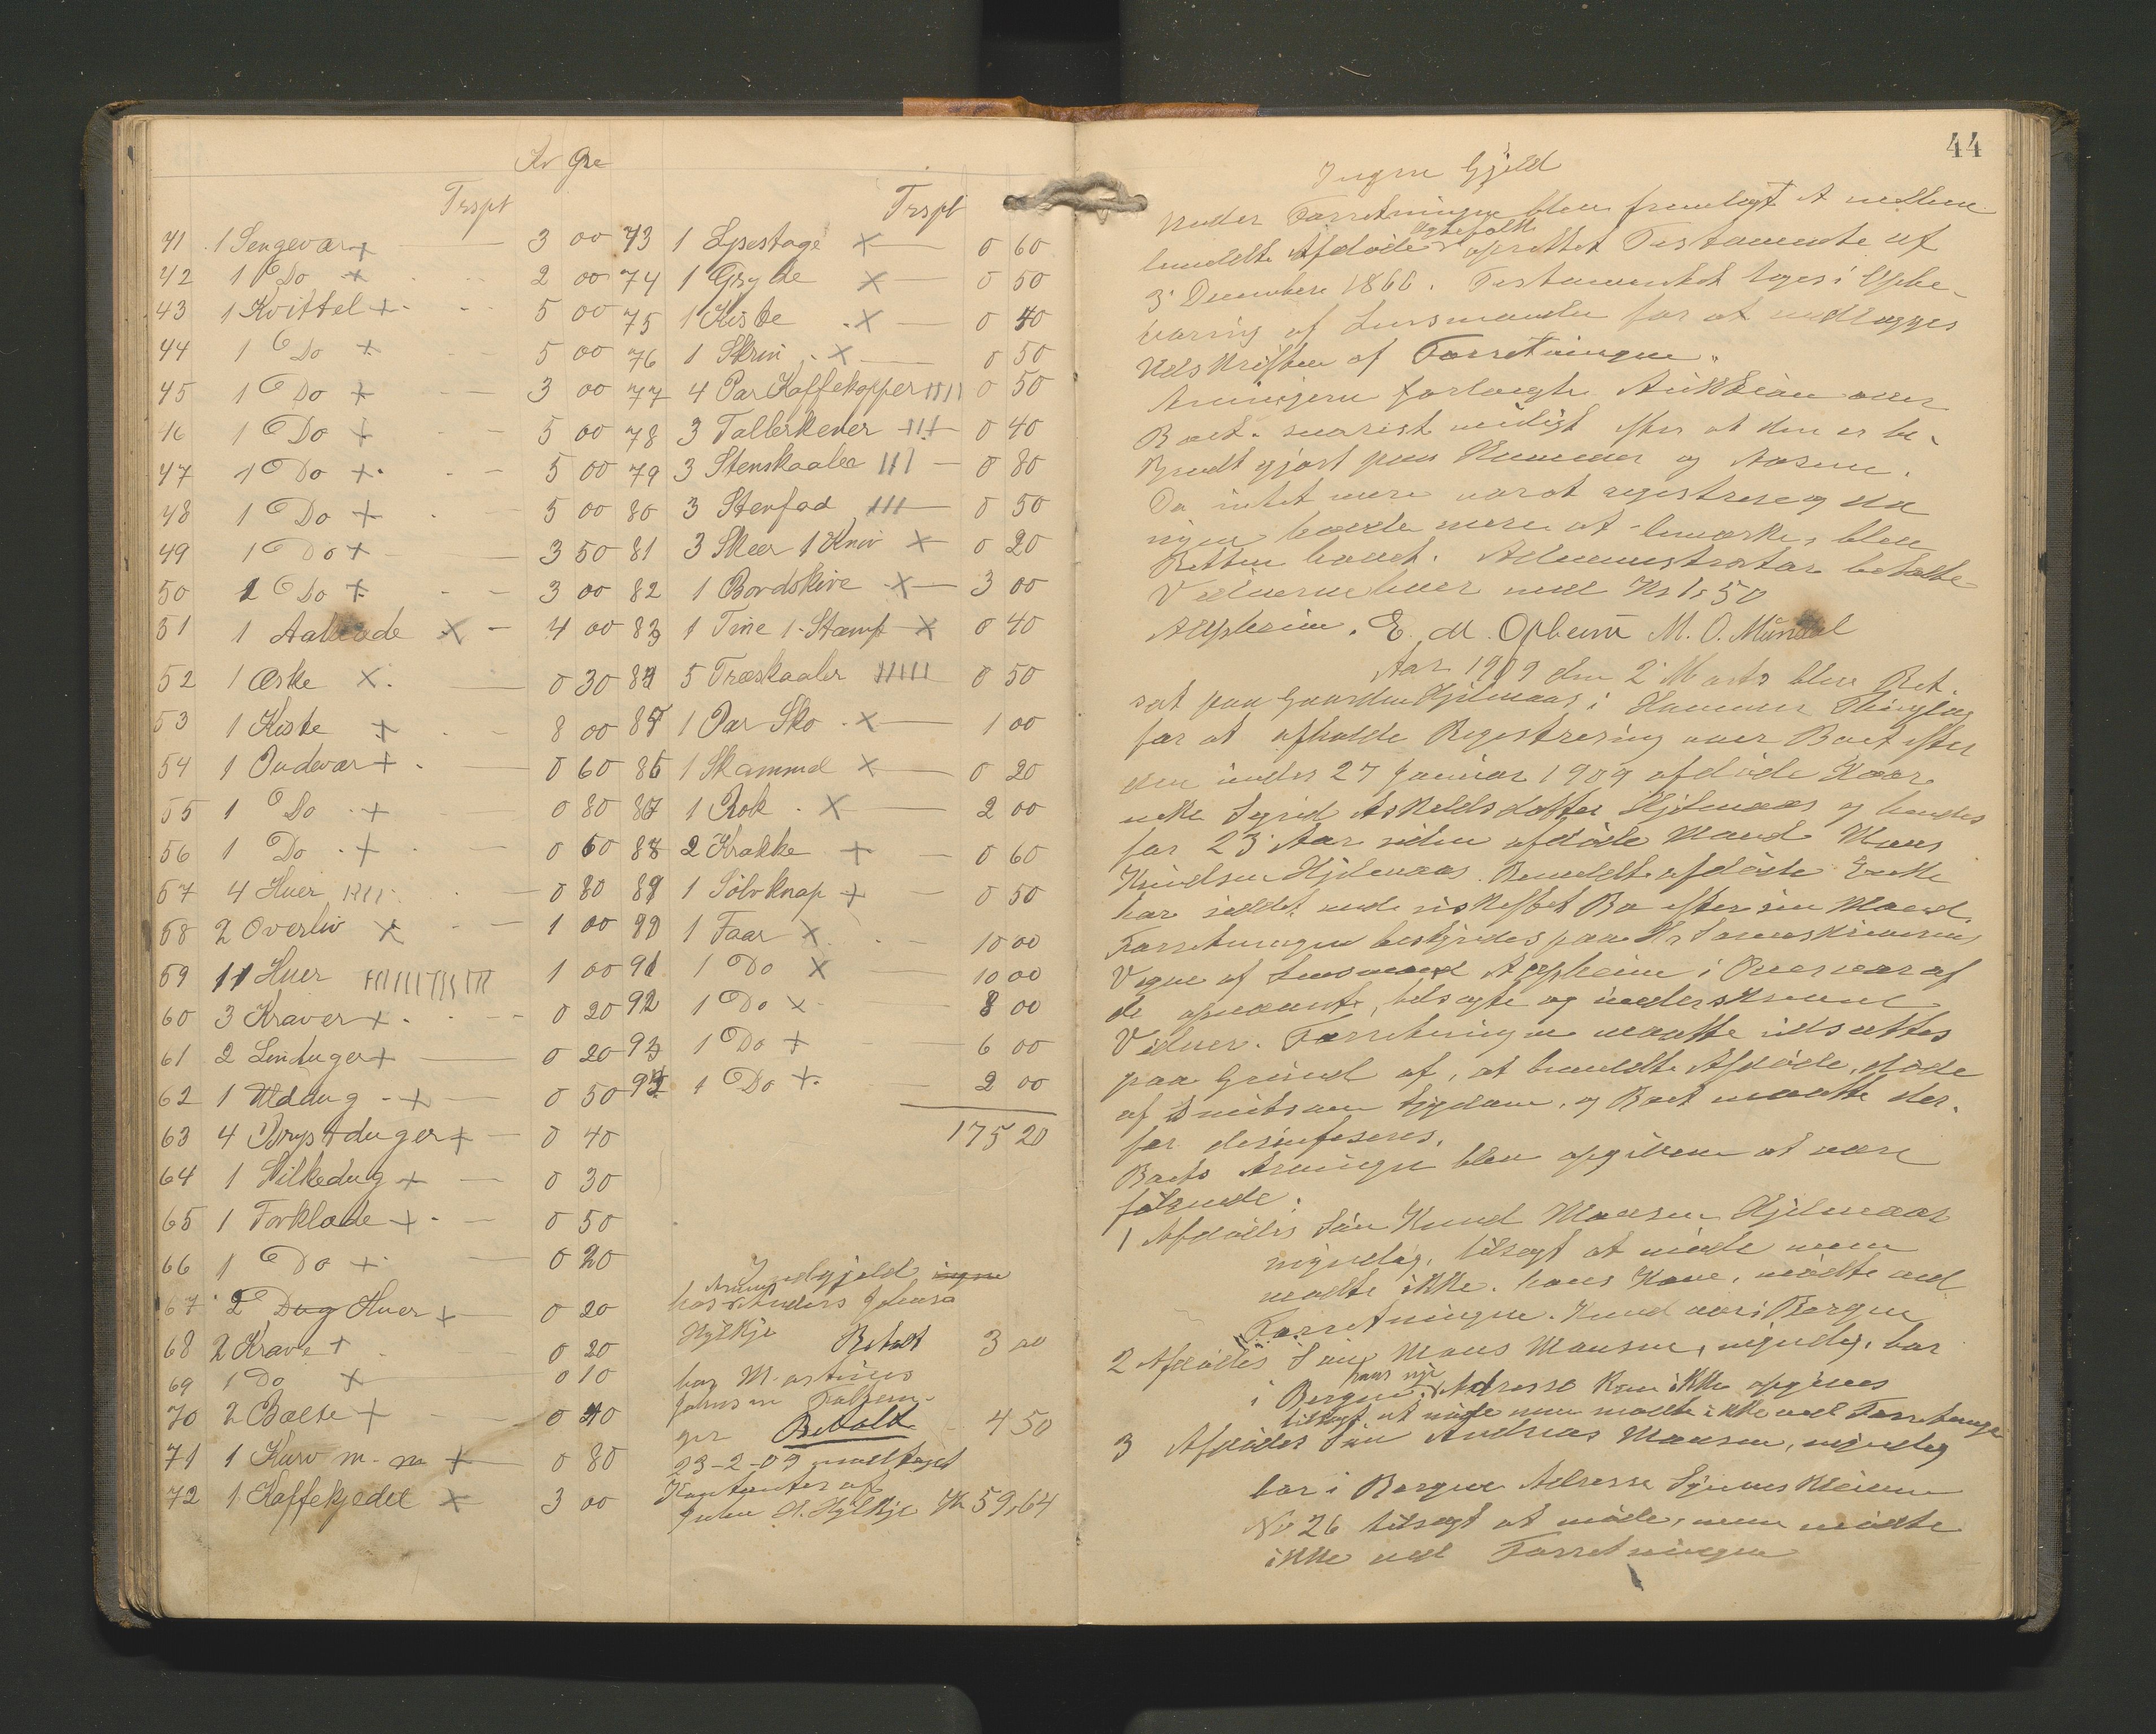 Kr Øre
Trspt
41 1 Sengevær + 3 00
42 1 Do + 2 00
43 1 Kvittel + 5 00
44 1 Do + 5 00
45 1 Do + 3 00
46 1 Do + 5 00
47 1 Do + 5 00
48 1 Do + 5 00
49 1 Do + 3 50
50 1 Do + 3 00
51 1 Aaklæde X 4 00
52 1 Æske X 0 30
53 1 Kiste + 8 00
54 1 Pudevar + 0 60
55 1 Do + 0 80
56 1 Do + 0 60
57 4 Huer IIII 0 80
58 2 Overliv X 1 00
59 11 Huer IIIIIIIIIII 1 00
60 3 Kraver + 0 20
61 2 Linduger + 0 20
62 1 Ulddug + 0 50
63 4 Brystduger + 0 40
64 1 Silkedug + 0 30
65 1 Forklæde + 0 50
66 1 Do + 0 20
67 2 Dug Huer + 0 20
68 2 Krave + 0 20
69 1 Do X 0 10
70 2 Bælte + 0 40
71 1 Kurv m. m + 0 80
72 1 Kaffekjedel X 3 00
Trspt
73 1 Lysestage X 0 60
74 1 Gryde X 0 50
75 1 Kiste X 0 40
76 1 Skrin X 0 50
77 4 Par Kaffekopper IIII 0 50
78 3 Tallerkener III 0 40
79 3 Stenskaaler III 0 80
80 3 Stenfad III 0 50
81 3 Skeer 1 Kniv X 0 20
82 1 Bordskive X 3 00
83 1 Tine 1 Stamp X 0 40
84 5 Træskaaler IIIII 0 50
85 1 Par Sko X 1 00
86 1 Skammel X 0 20
87 1 Rok X 2 00
88 2 Krakke + 0 60
89 1 Sølvknap + 0 50
90 1 Faar X 10 00
91 1 Do X 10 00
92 1 Do X 8 00
93 1 Do + 6 00
94 1 Do + 2 00
175 20
Indgjeld ingen
hos Arving Anders Johnsa
Hylkje Betalt 3 00
hos Martinus
Johnsen
ger Betalt 4 50
23-2-09 modtaget
Kontanter af
John A. Hylkje Kr 59,64
44
Ingen Gjeld
Under Forretningen blev fremlagt et mellem
bemeldte Afdøde Egtefolk oprettet Testamente af
3 December 1866. Testamentet toges i Opbe-
varing af Lensmanden for at vedlægges
Udskriften af Forretningen.
Arvingerne forlangte Auktion over
Boet snarest muligt efter at den er be-
kjendt gjort paa Hammer og Aasene.
Da intet mere var at registrere og da
ingen havde mere at bemærke, blev
Retten hævet. Administrator betalte
Vidnerne hver med Kr 1,50
A Uppheim. E. M. Opheim M. O. Mundal
Aar 1909 den 2 Marts blev Ret
sat paa Gaarden Hjelmaas i Hammer Thinglag
for at afholde Registrering over Boet efter
den under 27 Januar 1909 afdøde Kaar-
enke Sigrid Askeldsdatter Hjelmaas og hendes
for 23 Aar siden afdøde Mand Mons
Knudsen Hjelmaas. Bemeldte afdøde Enke
har siddet med uskiftet Bo efter sin Mand.
Forretningen bestyredes paa Hr Sorenskriverens
Vegne af Lensmand A Uppheim i Overvær af
de opnævnte, tilsagte og underskrevne
Vidner. Forretningen maatte udsættes
paa Grund af, at bemeldte Afdøde, døde
af smitsom Sygdom, og Boet maatte der-
for desinfiseres.
Boets Arvinger blev opgivne at være
følgende:
1 Afdødes Søn Knud Monsen Hjelmaas
myndig, tilsagt at møde men
mødte ikke. hans Kone, mødte ved
Forretningen. Knud var i Bergen
2 Afdødes Søn Mons Monsen, myndig, bor
i Bergen, hans nye Adresse kan ikke opgives
tilsagt at møde men mødte ikke ved Forretninge
3 Afdødes Søn Andreas Monsen, myndig
bor i Bergen Adresse
No 26 tilsagt at møde, men mødte
ikke ved Forretningen